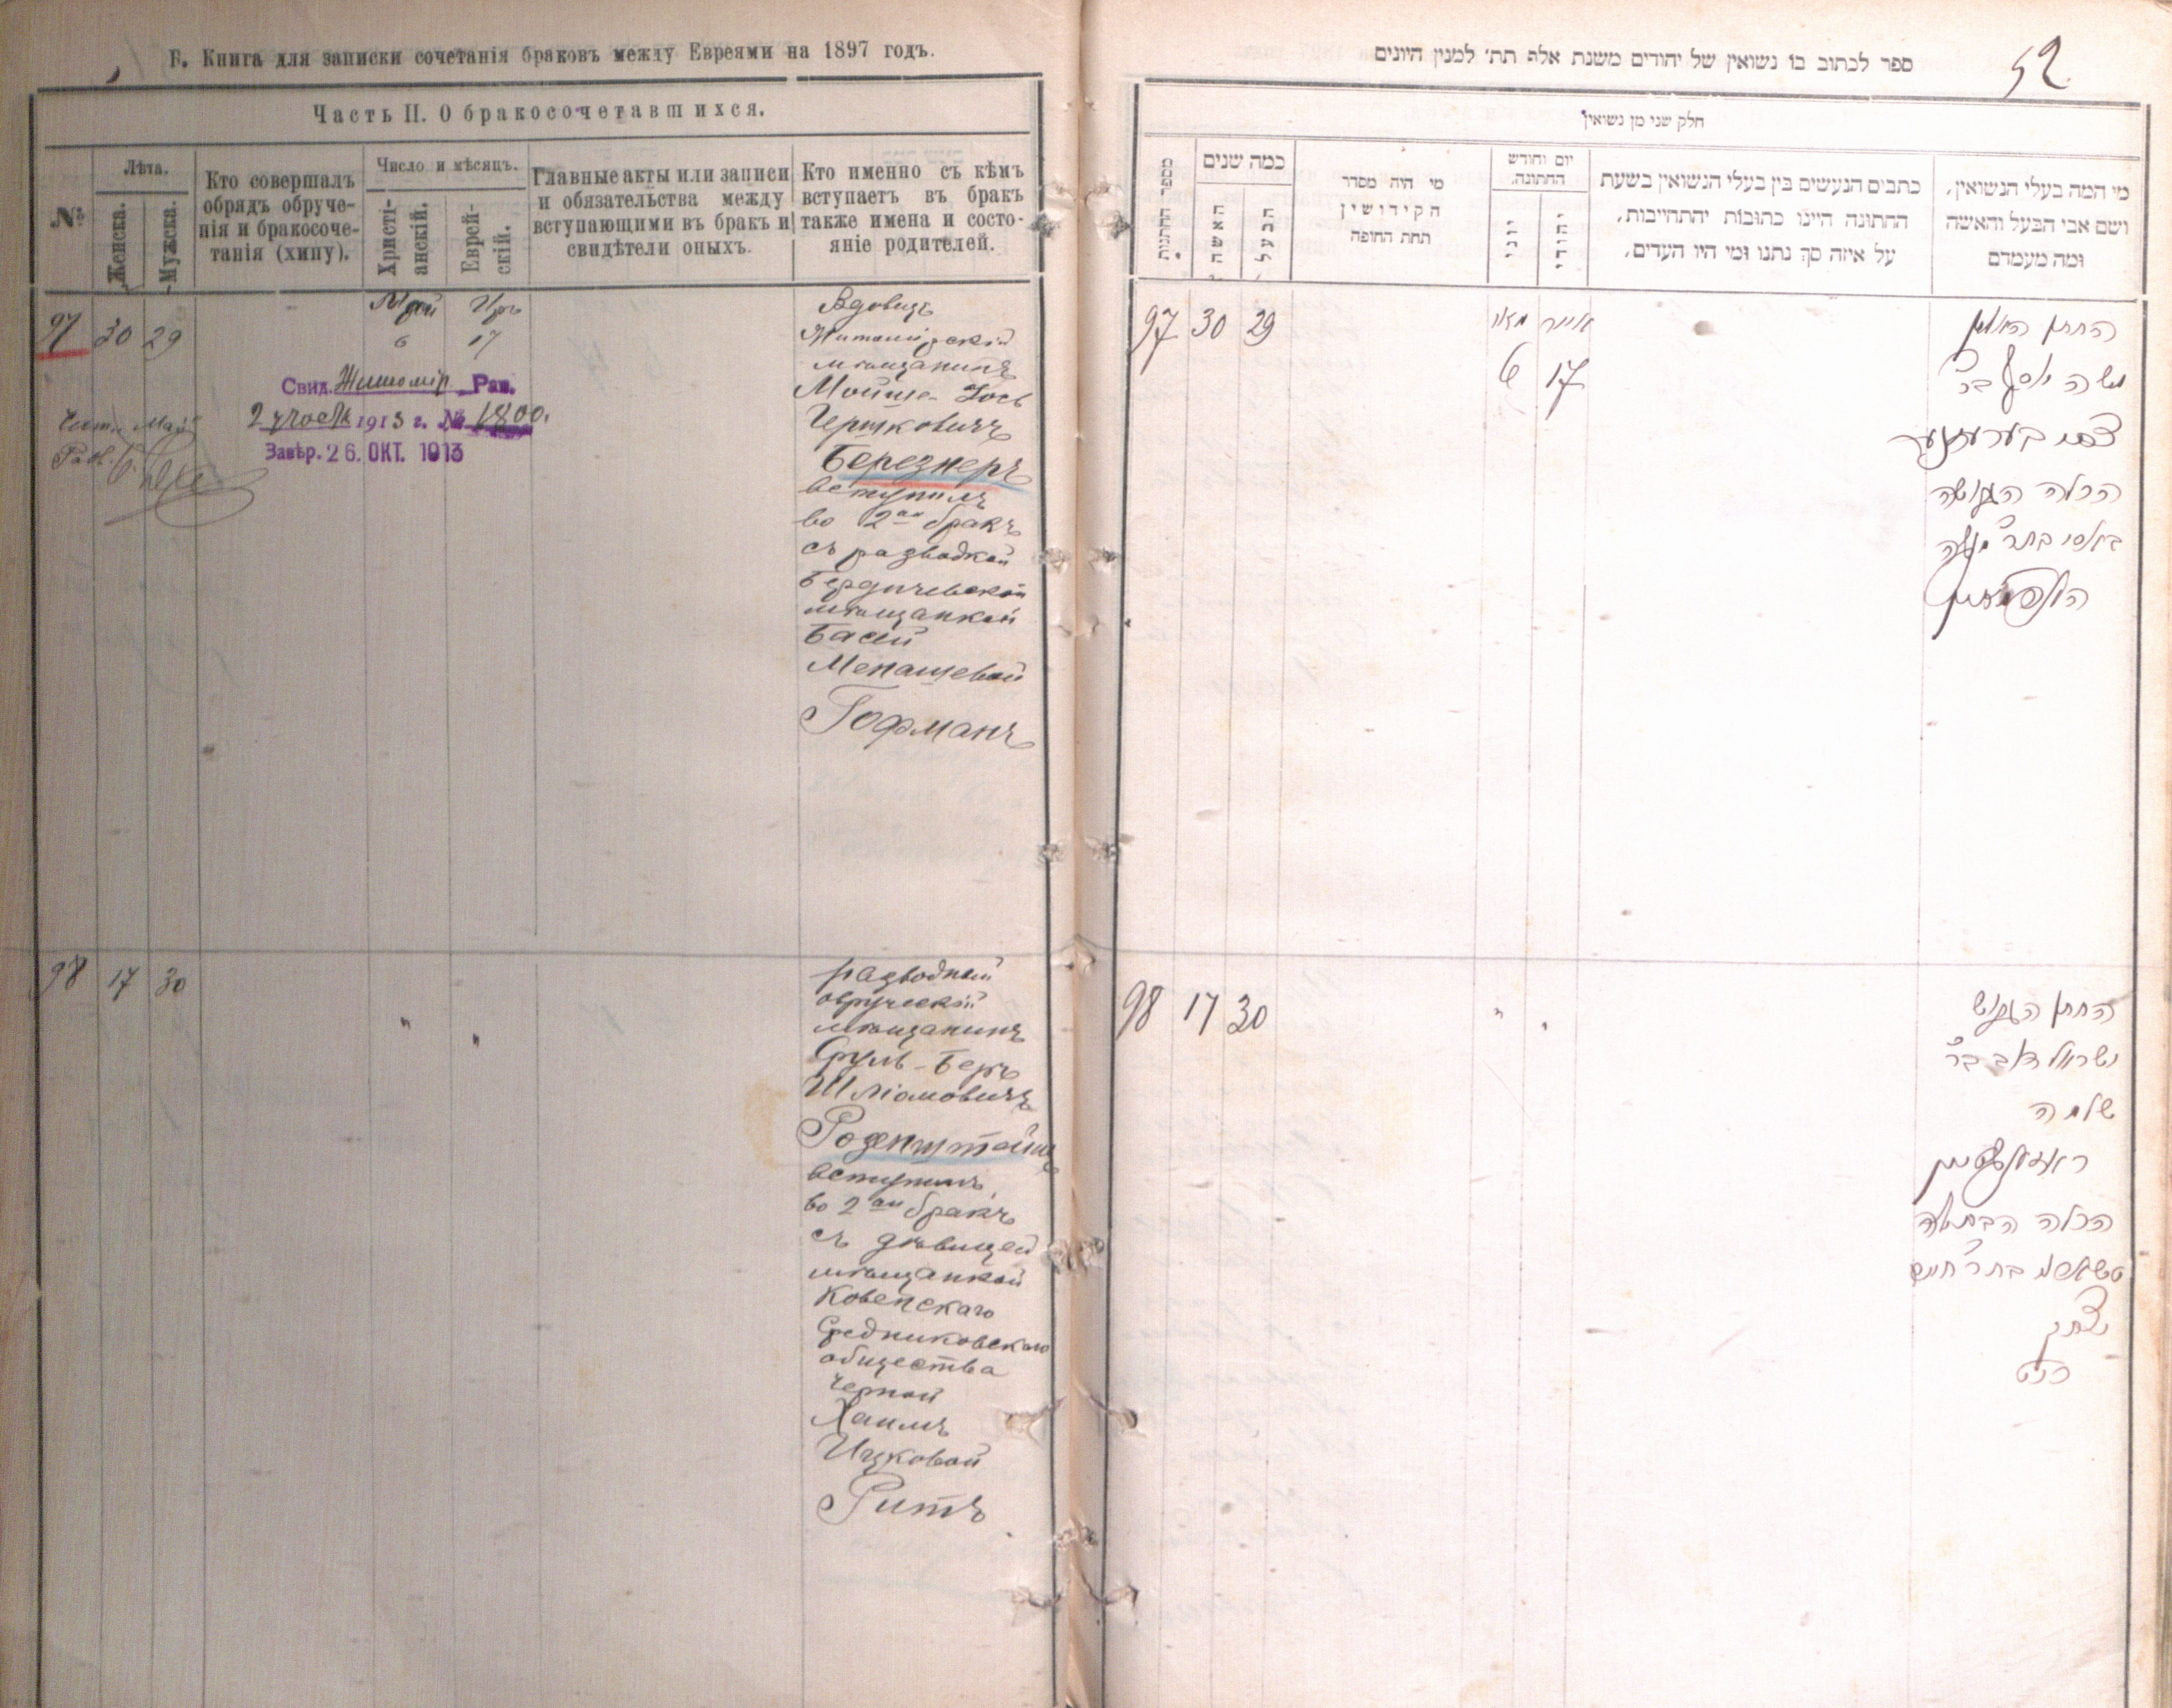 Б. Книга для записки сочетанія браковъ между Евреями на 1897 годъ.
Часть II. О бракосочетавшихся.
№
Лѣта.
Женска.
Мужска.
Кто совершалъ
обрядъ обруче-
нія и бракосоче-
танія (хипу).
Число и мѣсяцъ.
Христі-
анскій.
Еврей-
скій.
Главные акты или записи
и обязательства между
вступающими въ бракъ и
свидѣтели оныхъ.
Кто именно съ кѣмъ
вступаетъ въ бракъ
также имена и состо-
яніе родителей.
97 30 29
Май Иръ
6 17
Свид. Житомір. Рав.
2 участк 1913 г. № 1800.
Завѣр. 26. ОКТ. 1913
Вдовецъ
Житомірскій
мѣщанинъ
Мойше-Іось
Гершковичъ
Березнеръ
вступилъ
во 2ой бракъ
съ разводкой
Бердичевской
мѣщанкой
Басей
Менашевой
Гофманъ
98 17 30
" "
разводный
овручскій
мѣщанинъ
Сруль-Беръ
Шліомовичъ
Розенштейнъ
вступилъ
во 2ой бракъ
съ дѣвицей
мѣщанкой
Ковенскаго
Средниковскаго
общества
Черной
Хаимъ
Ицковой
Ритъ
ספר לכתוב בו נשואין של יהודים משנת אלף תת׳ למנין היונים
52
חלק שני מן נשואין
מספר החתונות
כמה שנים
האשה
הבעל
מי היה מסדר
הקידושין
תחת החופה
יום וחודש
החתונה
יוני
יהודי
כתבים הנעשים בין בעלי הנשואין בשעת
החתונה היינו כתובות והתחייבות,
על איזה סך נתנו ומי היו העדים,
מי המה בעלי הנשואין,
ושם אבי הבעל והאשה
ומה מעמדם
97 30 29
מאי אייר
6 17
החתן האלמן
משה יוסף בר׳
צבי בערעזנער
הכלה הגרושה
באסי בתר׳ מנשה
האפמאן
98 17 30
" "
החתן הגרוש
ישראל דוב בר׳
שלמה
ראזענשטיין
הכלה הבתולה
טשארנע בתר׳ חיים
יצחק
ריט